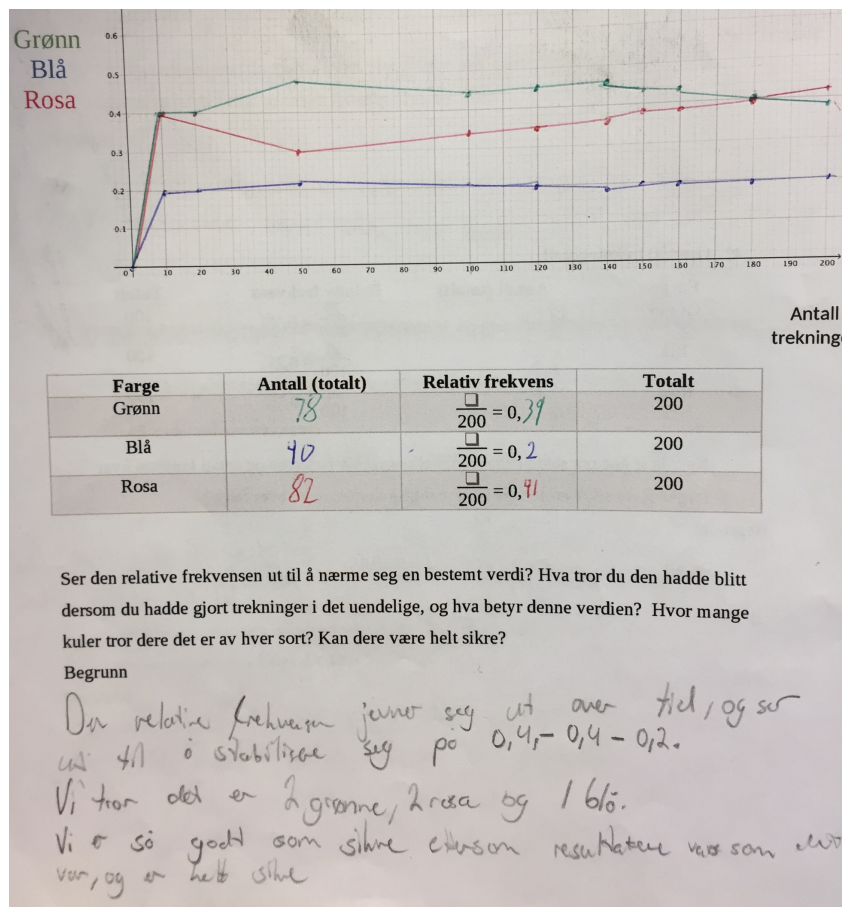 Grønn
Blå
Rosa
0.6
0.5
0.4
0.3
0.2
0.1
0 1 10 20 30 40 50 60 70 80 90 100 110 120 130 140 150 160 170 180 190 200
Antall
trekninge
Farge Antall (totalt) Relativ frekvens Totalt
Grønn 78 □/200 = 0,39 200
Blå 40 □/200 = 0,2 200
Rosa 82 □/200 = 0,41 200
Ser den relative frekvensen ut til å nærme seg en bestemt verdi? Hva tror du den hadde blitt
dersom du hadde gjort trekninger i det uendelige, og hva betyr denne verdien? Hvor mange
kuler tror dere det er av hver sort? Kan dere være helt sikre?
Begrunn
Den relative frekvensen jevner seg ut over tid, og ser
ut til å stabilisere seg på 0,4,- 0,4 - 0,2.
Vi tror det er 2 grønne, 2 rosa og 1 blå.
Vi er så godt som sikre ettersom resultatene var som
var, og er helt sikre